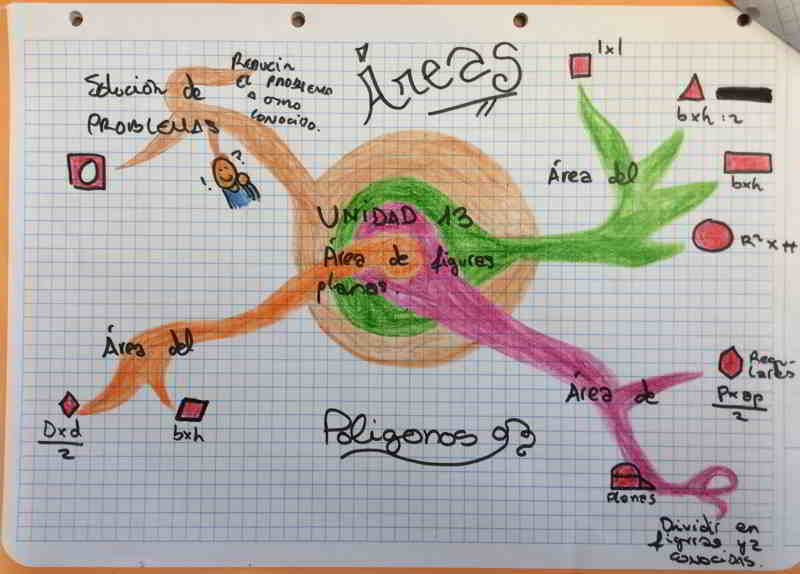 Áreas
Solución de
PROBLEMAS
REDUCIR
EL PROBLEMA
A OTRO
CONOCIDO.
! ?
1x1
bxh:2
bxh
R² x π
Área del
UNIDAD 13
Área de figuras
planas.
Área del
Dxd
2
bxh
Área de
Regu-
lares
Pxap
2
planas
Dividir en
figuras ya
conocidas.
Polígonos